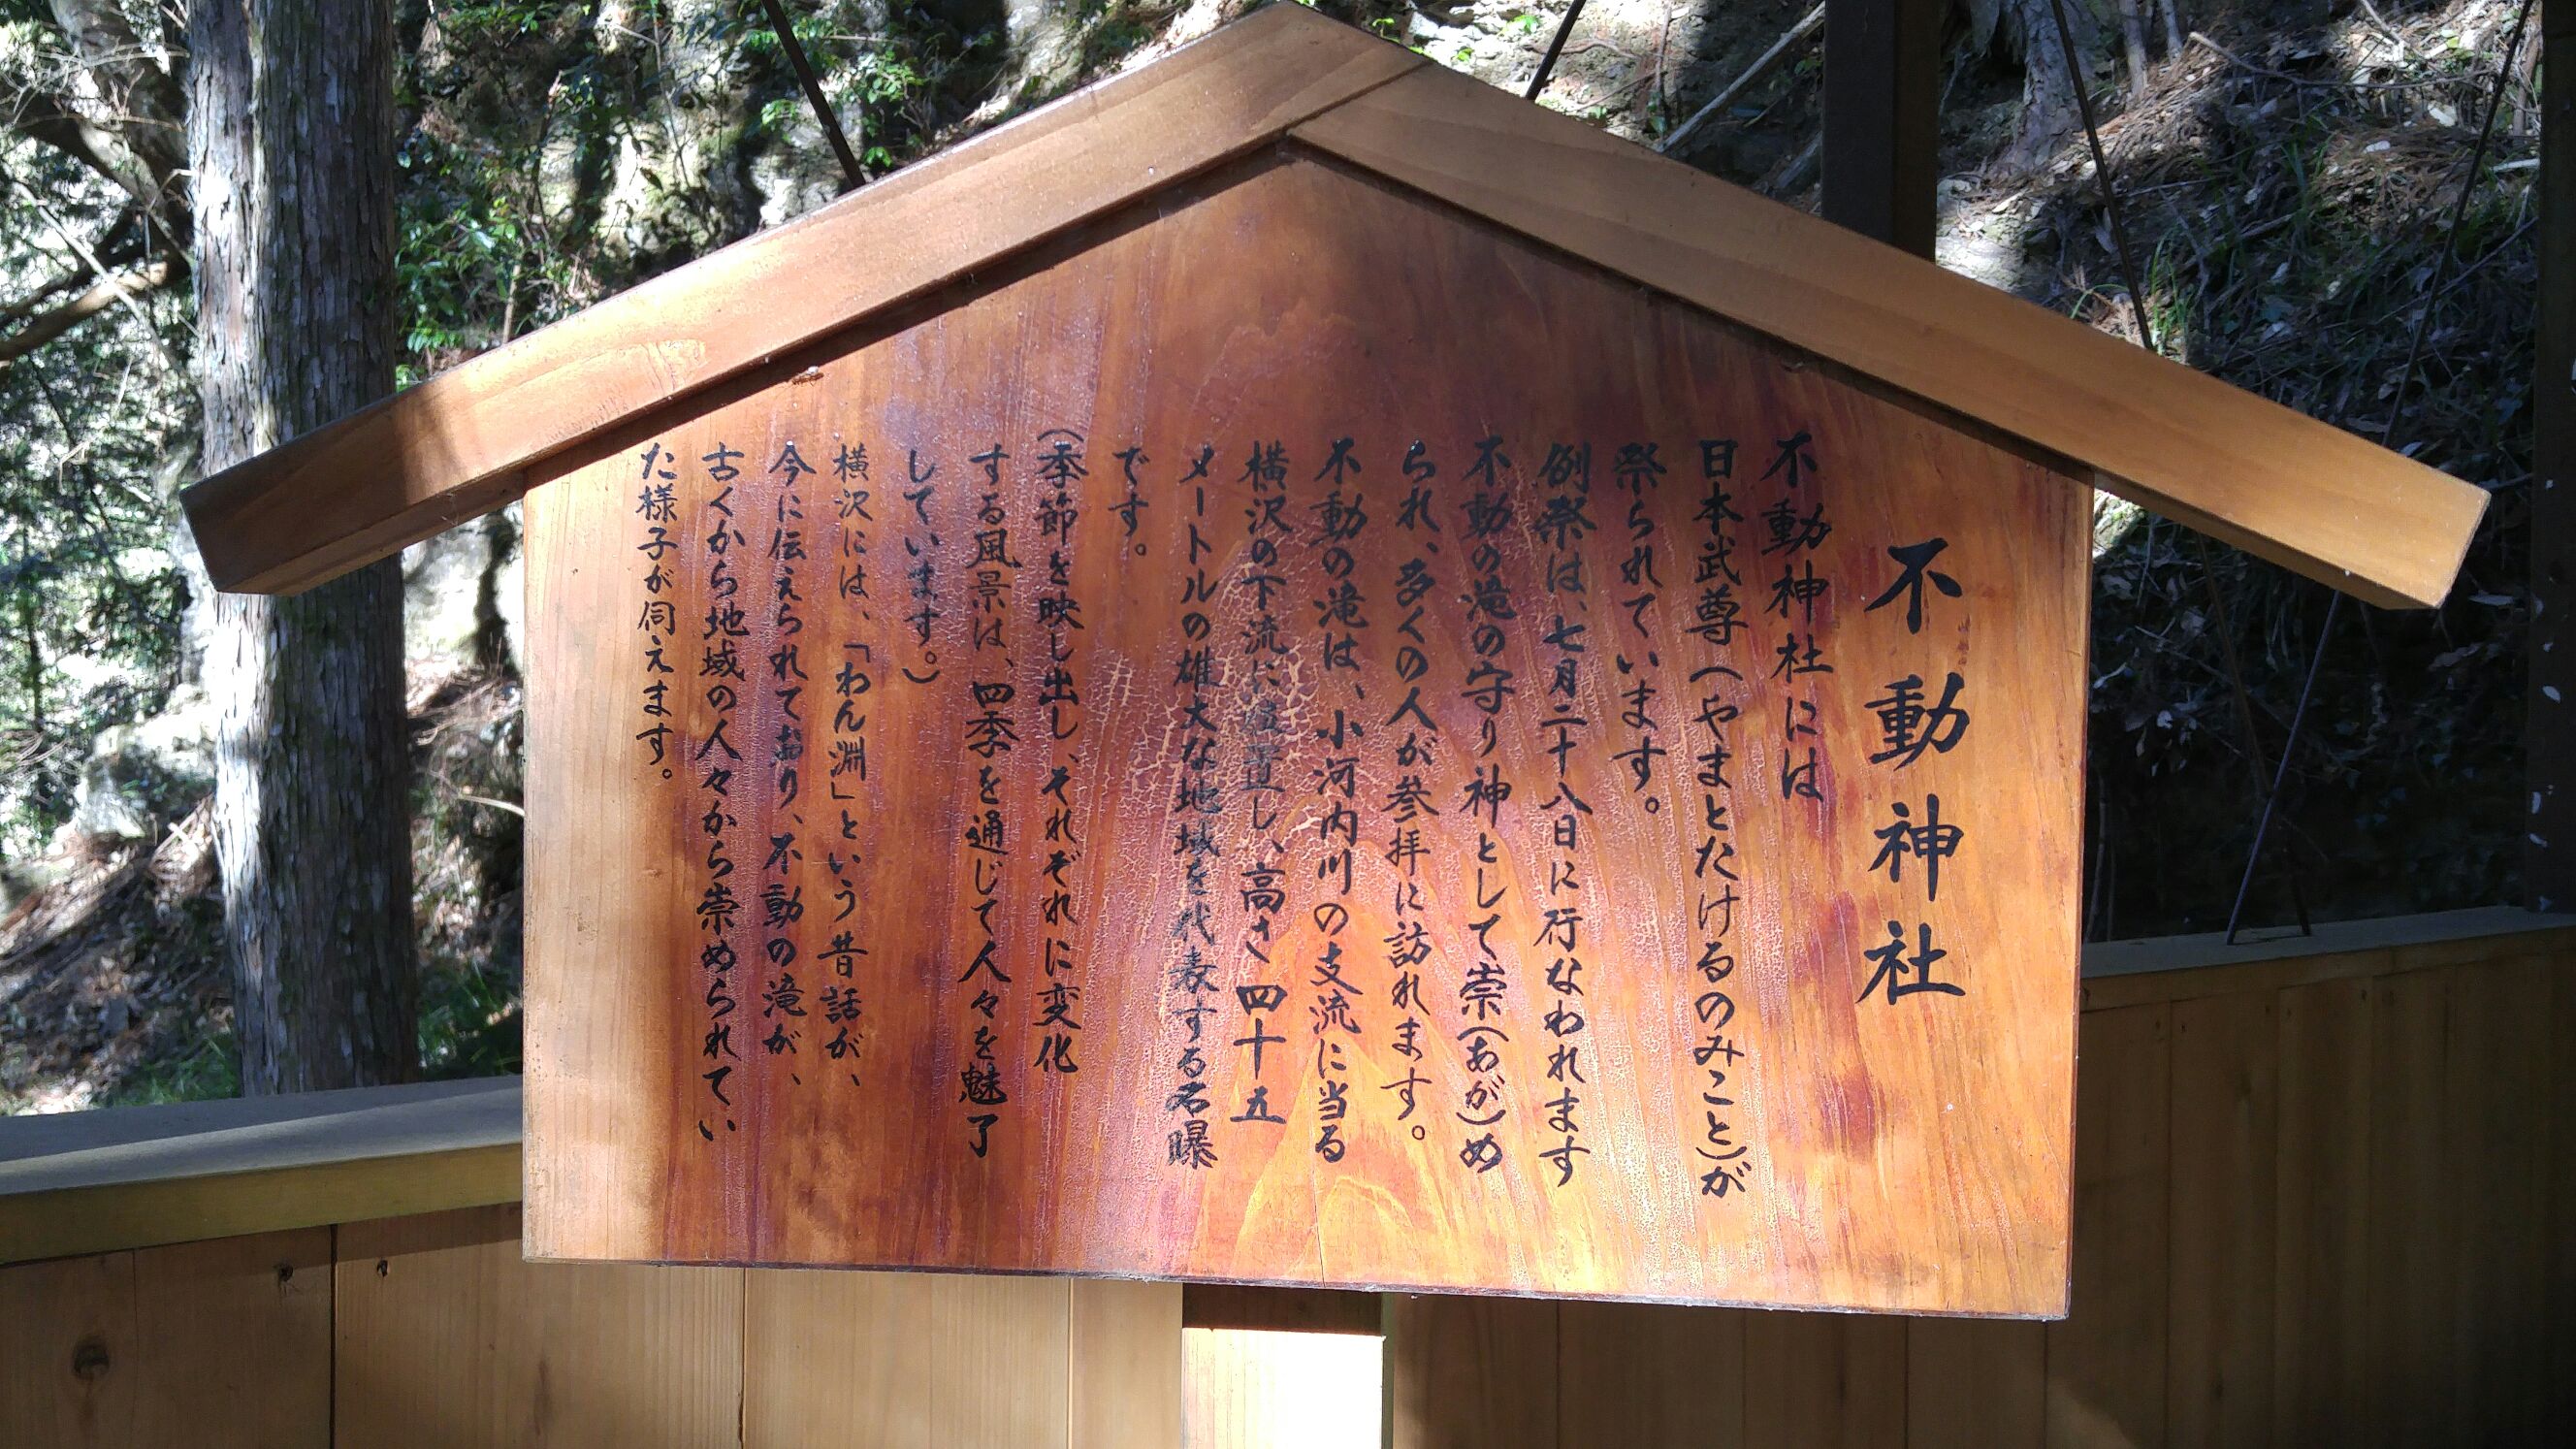 不動神社
不動神社には
日本武尊(やまとたけるのみこと)が
祭られています。
例祭は、七月二十八日に行なわれます
不動の滝の守り神として崇(あが)め
られ、多くの人が参拝に訪れます。
不動の滝は、小河内川の支流に当る
横沢の下流に位置し、高さ四十五
メートルの雄大な地域を代表する名曝
です。
(季節を映し出し、それぞれに変化
する風景は、四季を通じて人々を魅了
しています。)
横沢には、「わん淵」という昔話が、
今に伝えられており、不動の滝が、
古くから地域の人々から崇められてい
た様子が伺えます。